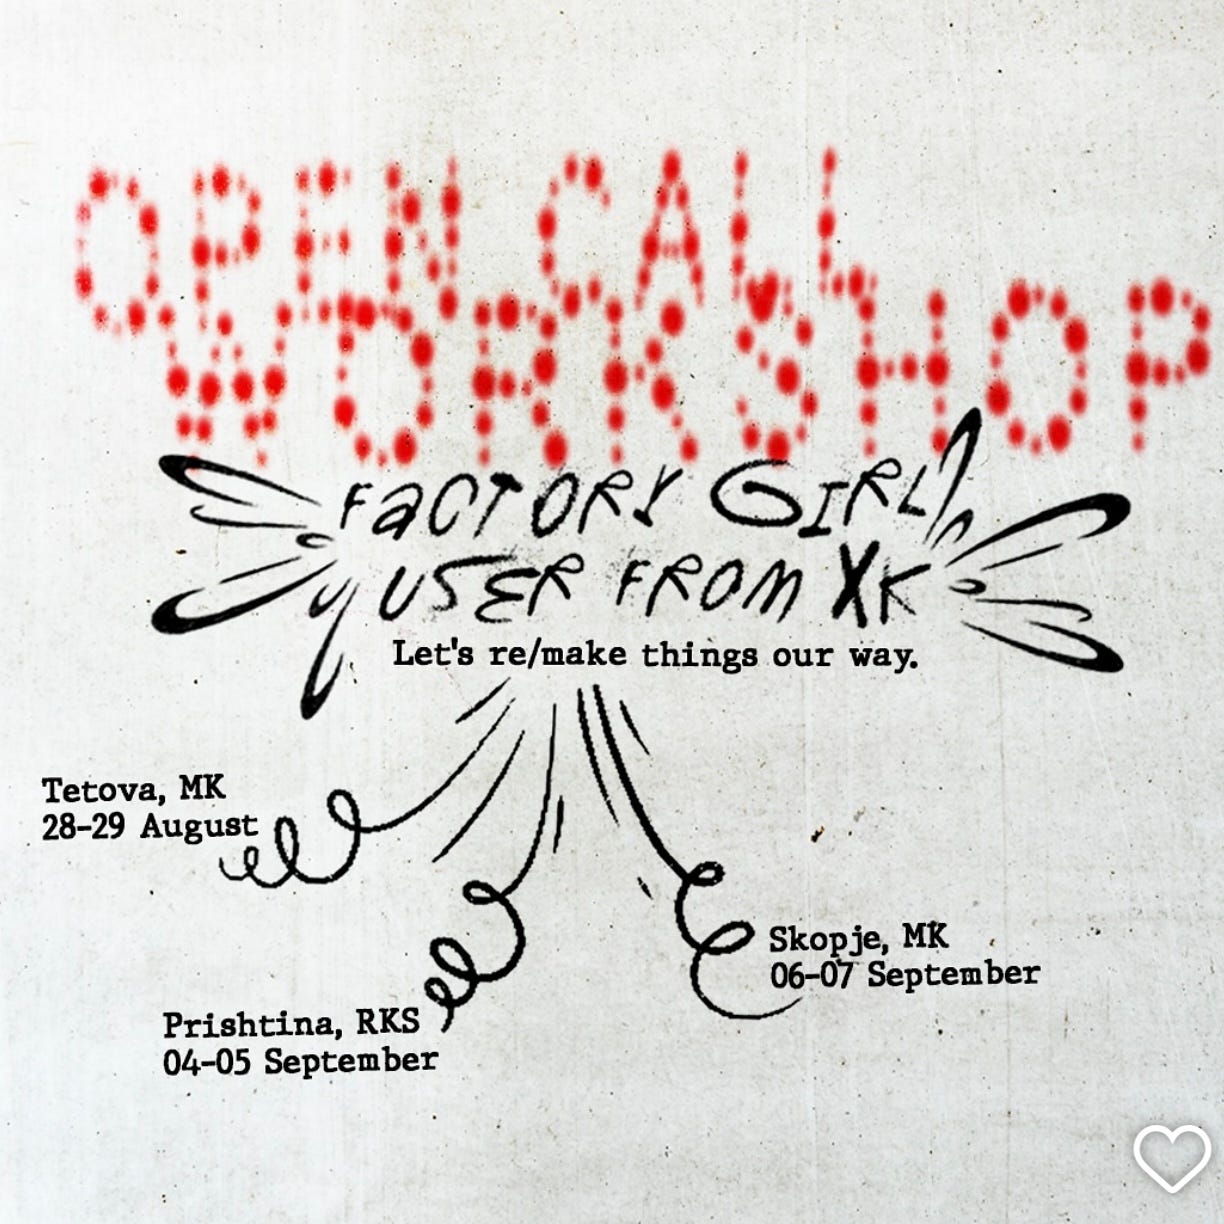 OPEN CALL
WORKSHOP
FACTORY GIRL,
USER FROM XK
Let's re/make things our way.
Tetova, MK
28-29 August
Prishtina, RKS
04-05 September
Skopje, MK
06-07 September